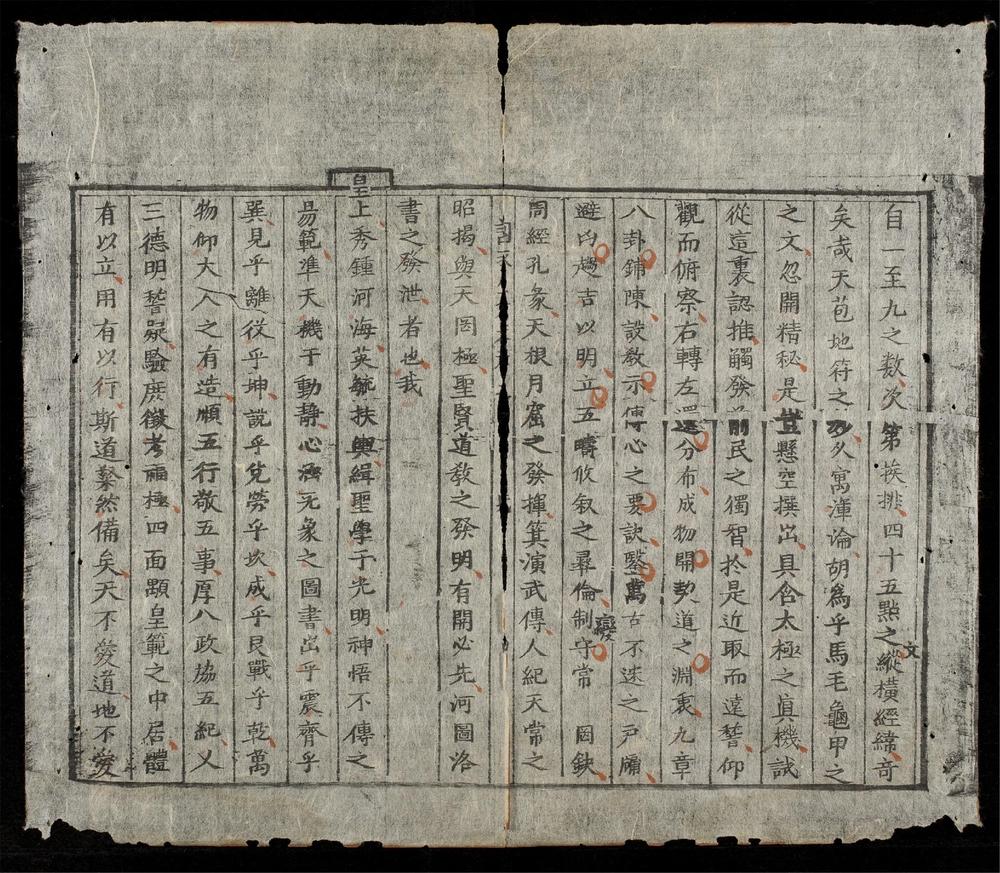 自一至九之数次第挨排四十五點之縱横經緯奇
文
矣㢤天苞地符之妙久寓渾淪胡爲乎馬毛龜甲之
之文忽開精秘是豈懸空撰出具含太極之眞機試
從這裏認推觸發前民之獨智於是近取而遠稽仰
觀而俯察右轉左還分布成物開契道之淵裏九章
八卦鋪陳設教示傳心之要訣鑿萬古不迷之戸牖
避凶趨吉以明立五疇攸叙之尋倫制守常 固缺
變
周經孔彖天根月窟之發揮箕演武傳人紀天常之
昭揭與天罔極聖賢道敎之發明有開必先河圖洛
書之發泄者也我
皇
上秀鍾河海英毓扶輿緝聖學于光明神悟不傳之
易範準天機于動静心涵无象之圖書出乎震齊乎
巽見乎離役乎坤説乎兌勞乎坎成乎艮戰乎乾萬
物仰大人之有造順五行敬五事厚八政協五紀乂
三德明稽疑驗庶徴考福極四面顯皇範之中居體
有以立用有以行斯道粲然備矣天不愛道地不愛